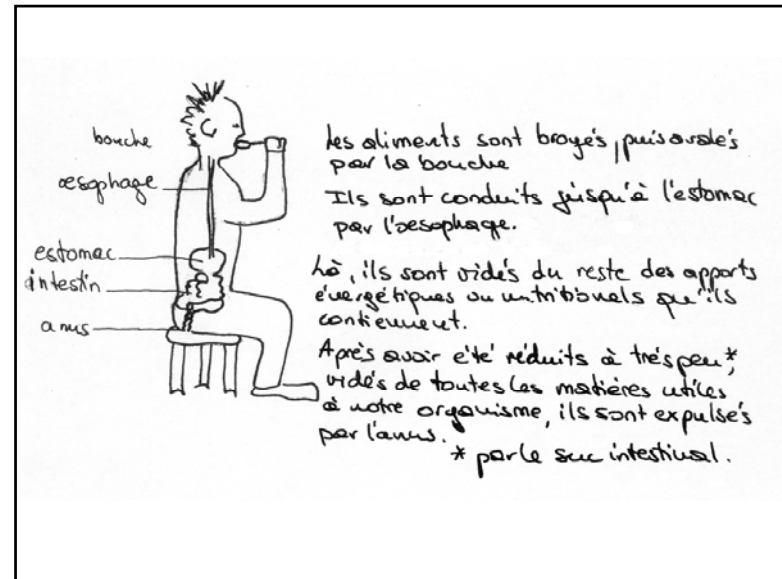 bouche
œsophage
estomac
intestin
anus
Les aliments sont broyés, puis avalés
par la bouche
Ils sont conduits jusqu'à l'estomac
par l'œsophage.
Là, ils sont vidés du reste des apports
énergétiques ou nutritionnels qu'ils
contiennent.
Après avoir été réduits à très peu*,
vidés de toutes les matières utiles
à notre organisme, ils sont expulsés
par l'anus.
* par le suc intestinal.